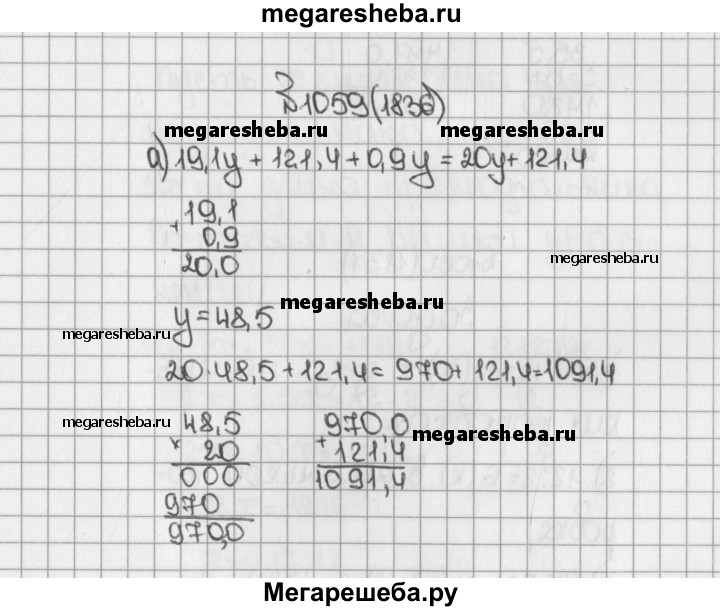 megaresheba.ru
№1059(1836)
megaresheba.ru megaresheba.ru
а) 19,1y + 121,4 + 0,9y = 20y + 121,4
19,1
+ 0,9
20,0
megaresheba.ru
megaresheba.ru
y = 48,5
megaresheba.ru
20·48,5 + 121,4 = 970 + 121,4 = 1091,4
megaresheba.ru
48,5 970,0
× 20 + 121,4
megaresheba.ru
000 1091,4
970
970,0
Мегарешеба.ру